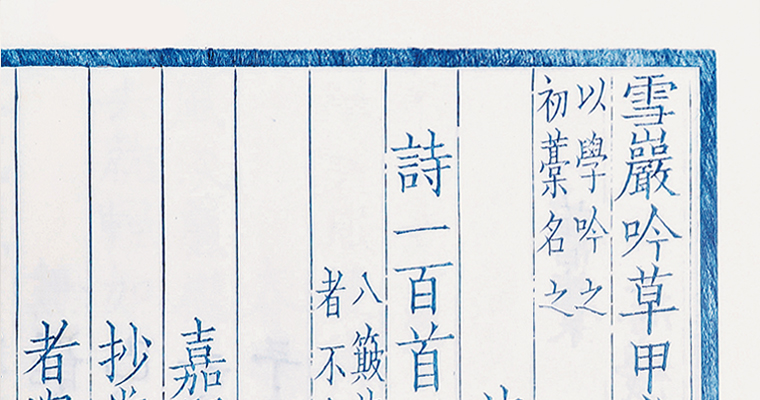 雪巖吟草甲
以學吟之
初藁名之
詩一百首
八簸
者不
嘉
抄
者